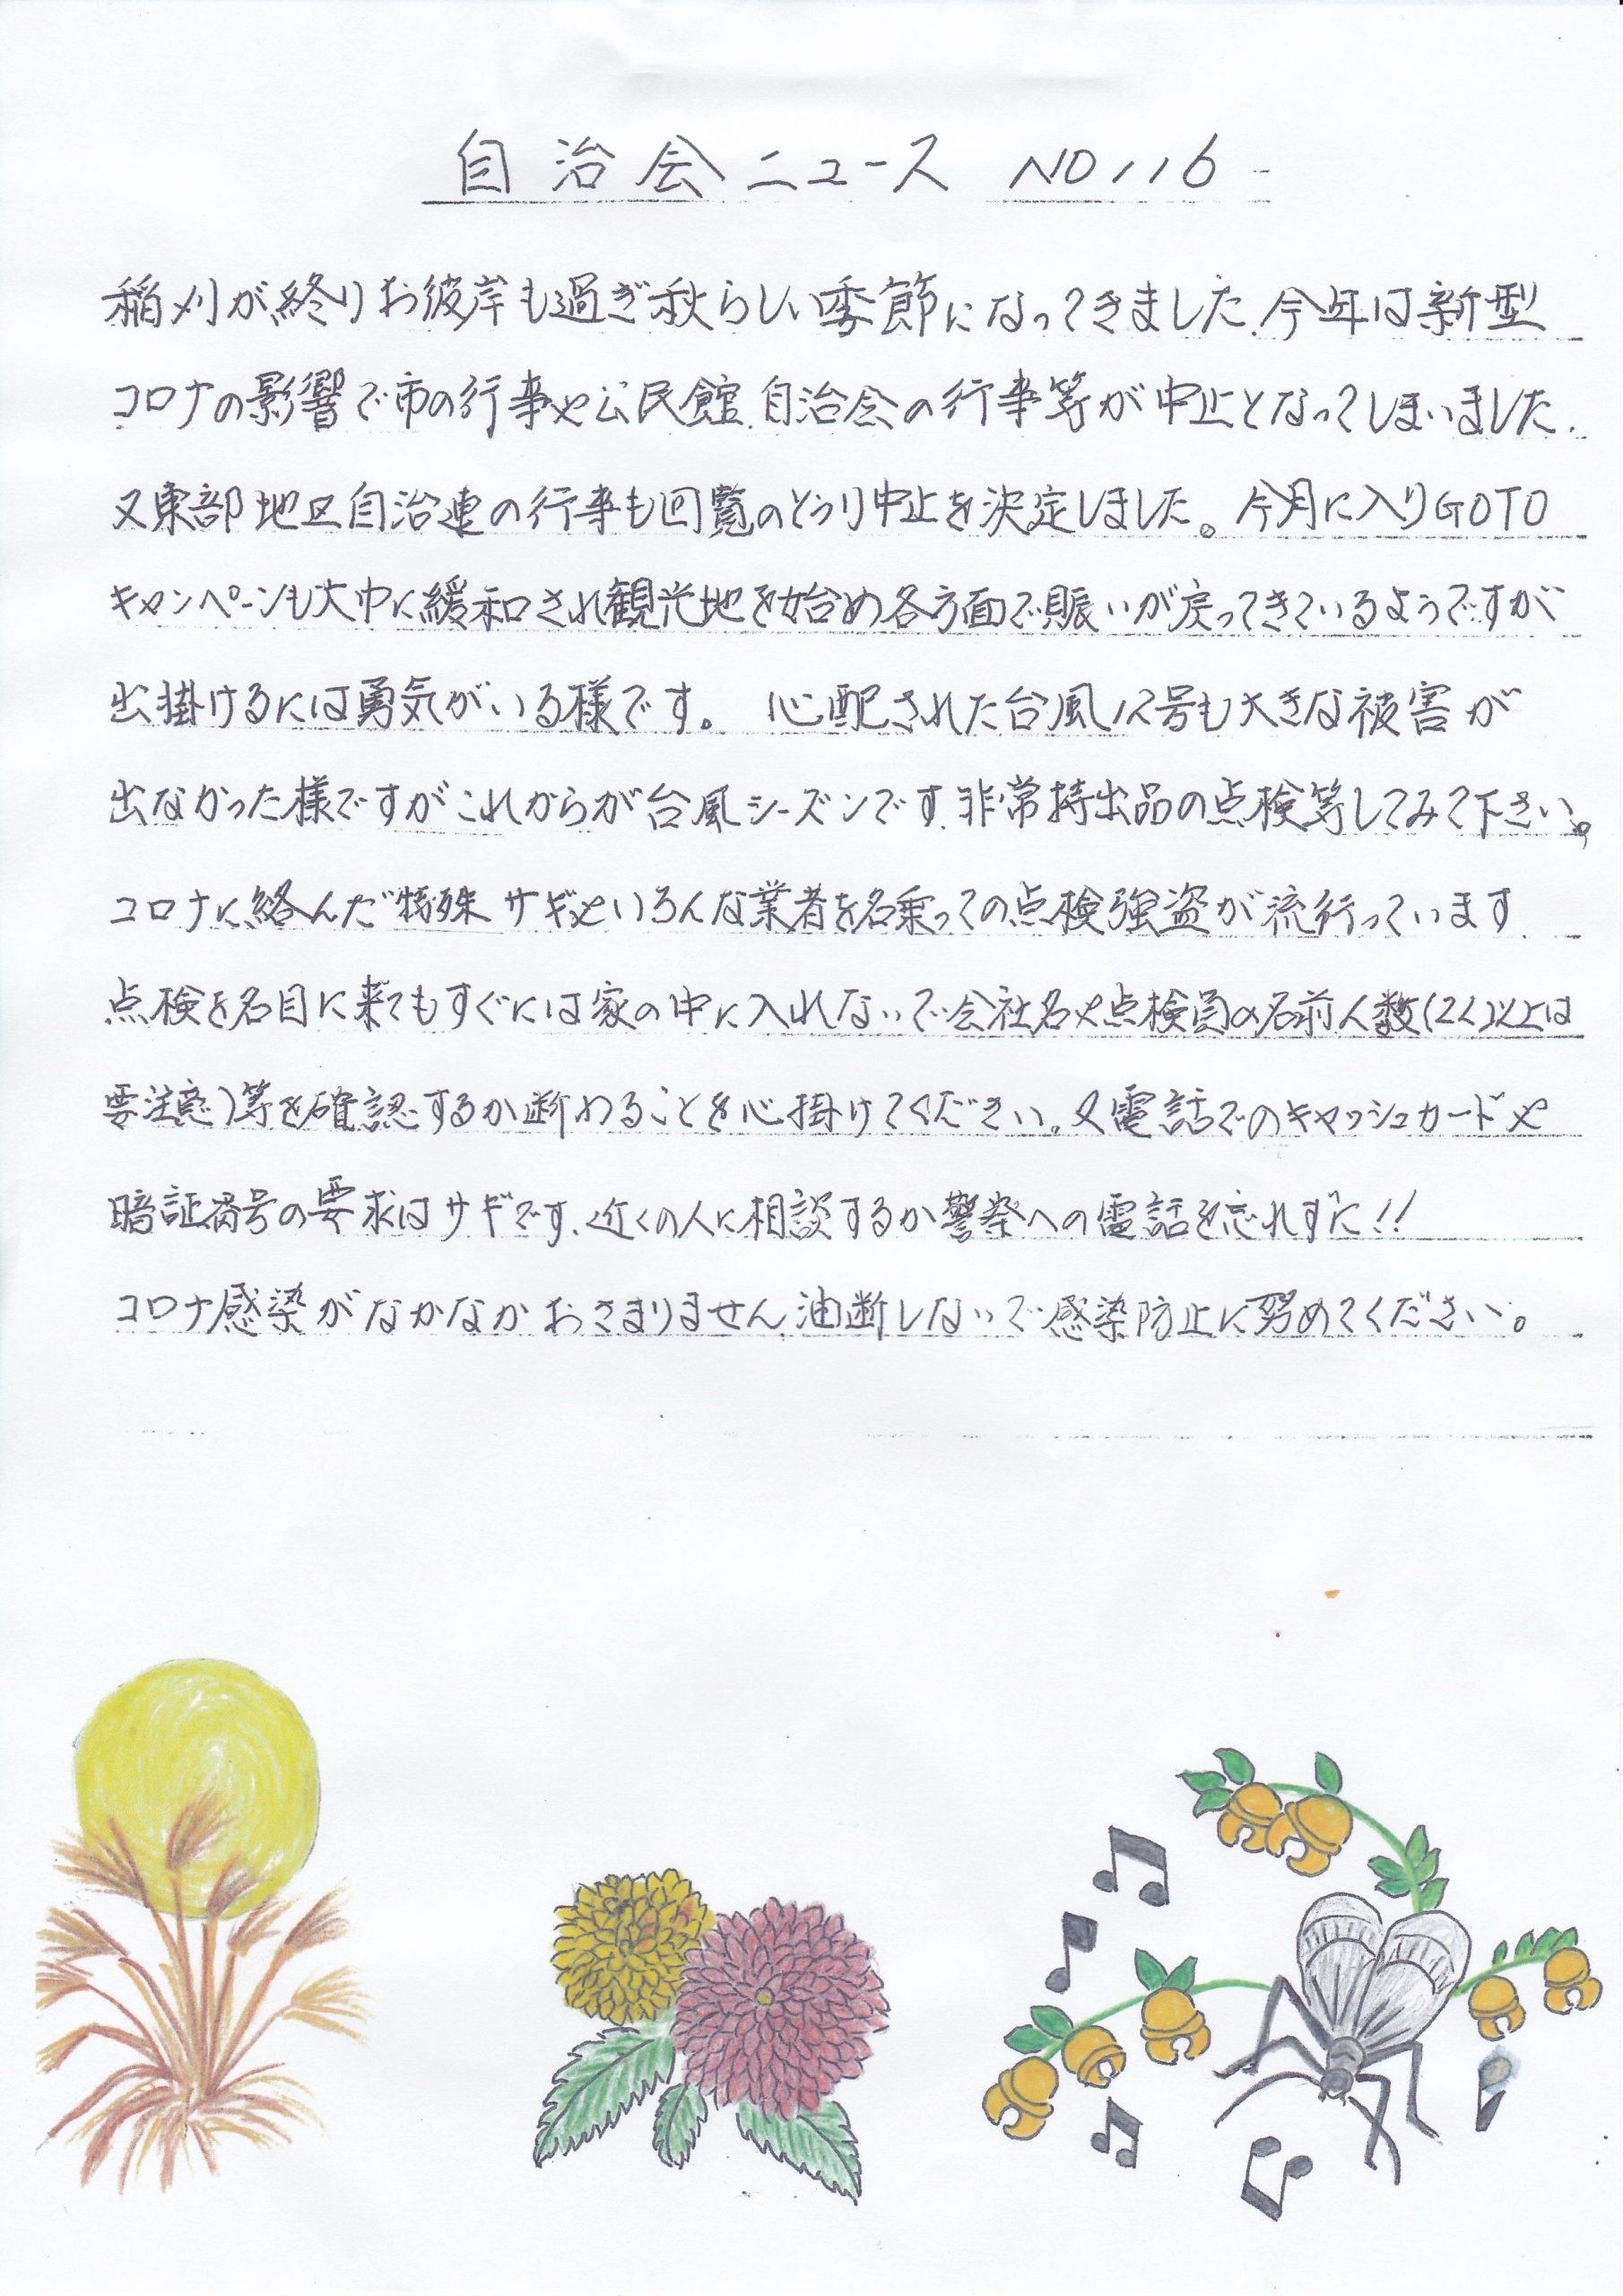 自治会ニュース NO116
稲刈が終りお彼岸も過ぎ秋らしい季節になってきました、今年は新型
コロナの影響で市の行事や公民館、自治会の行事等が中止となってしまいました、
又東部地区自治連の行事も回覧のとうり中止を決定しました。今月に入りGOTO
キャンペーンも大巾に緩和され観光地を始め各方面で賑いが戻ってきているようですが
出掛けるには勇気がいる様です。 心配された台風12号も大きな被害が
出なかった様ですがこれからが台風シーズンです、非常持出品の点検等してみて下さい。
コロナに絡んだ特殊サギやいろんな業者を名乗っての点検強盗が流行っています、
点検を名目に来てもすぐには家の中に入れないで会社名や点検員の名前人数(2人以上は
要注意)等を確認するか断わることを心掛けてください。又電話でのキャッシュカードや
暗証番号の要求はサギです、近くの人に相談するか警察への電話を忘れずに!!
コロナ感染がなかなかおさまりません、油断しないで感染防止に努めてください。